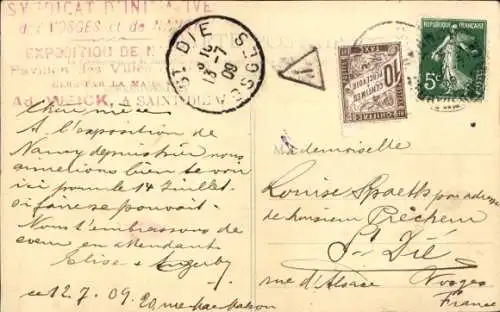 SYNDICAT D'INITIATIVE
des VOSGES et de NANCY
EXPOSITION DE N
Pavillon des Villes
Ad. WEICK, A SAINT-DIÉ
ST DIÉ VOSGES
13 -7
09
T
10
CENTIMES
A PERCEVOIR
RÉPUBLIQUE FRANÇAISE
5c
Chère
A l'exposition de
Nancy depuis hier nous
aimerions bien te voir
ici pour le 14 Juillet
si faire se pouvait.
Nous t'embrassons de
coeur en attendant
Elise
ce 12.7.09.
Mademoiselle
Louise Spaeth par adresse
de Monsieur Pêcheur
St Dié
rue d'Alsace Vosges
France